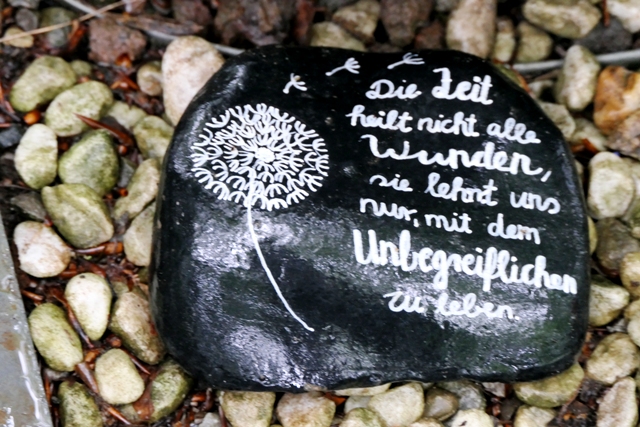 Die Zeit
heilt nicht alle
Wunden,
sie lehrt uns
nur, mit dem
Unbegreiflichen
zu leben